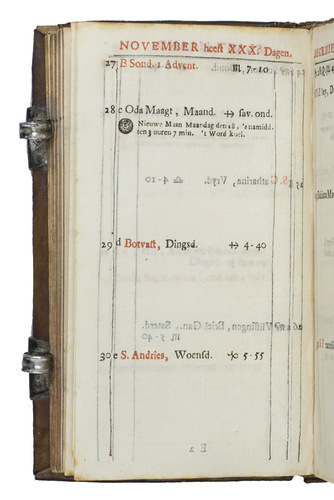 NOVEMBER heeft XXX. Dagen.
27 B Sond. 1. Advent. ♏ 7-10
28 c Oda Maagt, Maand. ♐ sav. ond.
Nieuwe Maan Maandag den 28, 's namidd.
ten 3 uuren 7 min. 't Word koel.
29 d Botvast, Dingsd. ♐ 4-40
30 e S. Andries, Woensd. ♑ 5-55